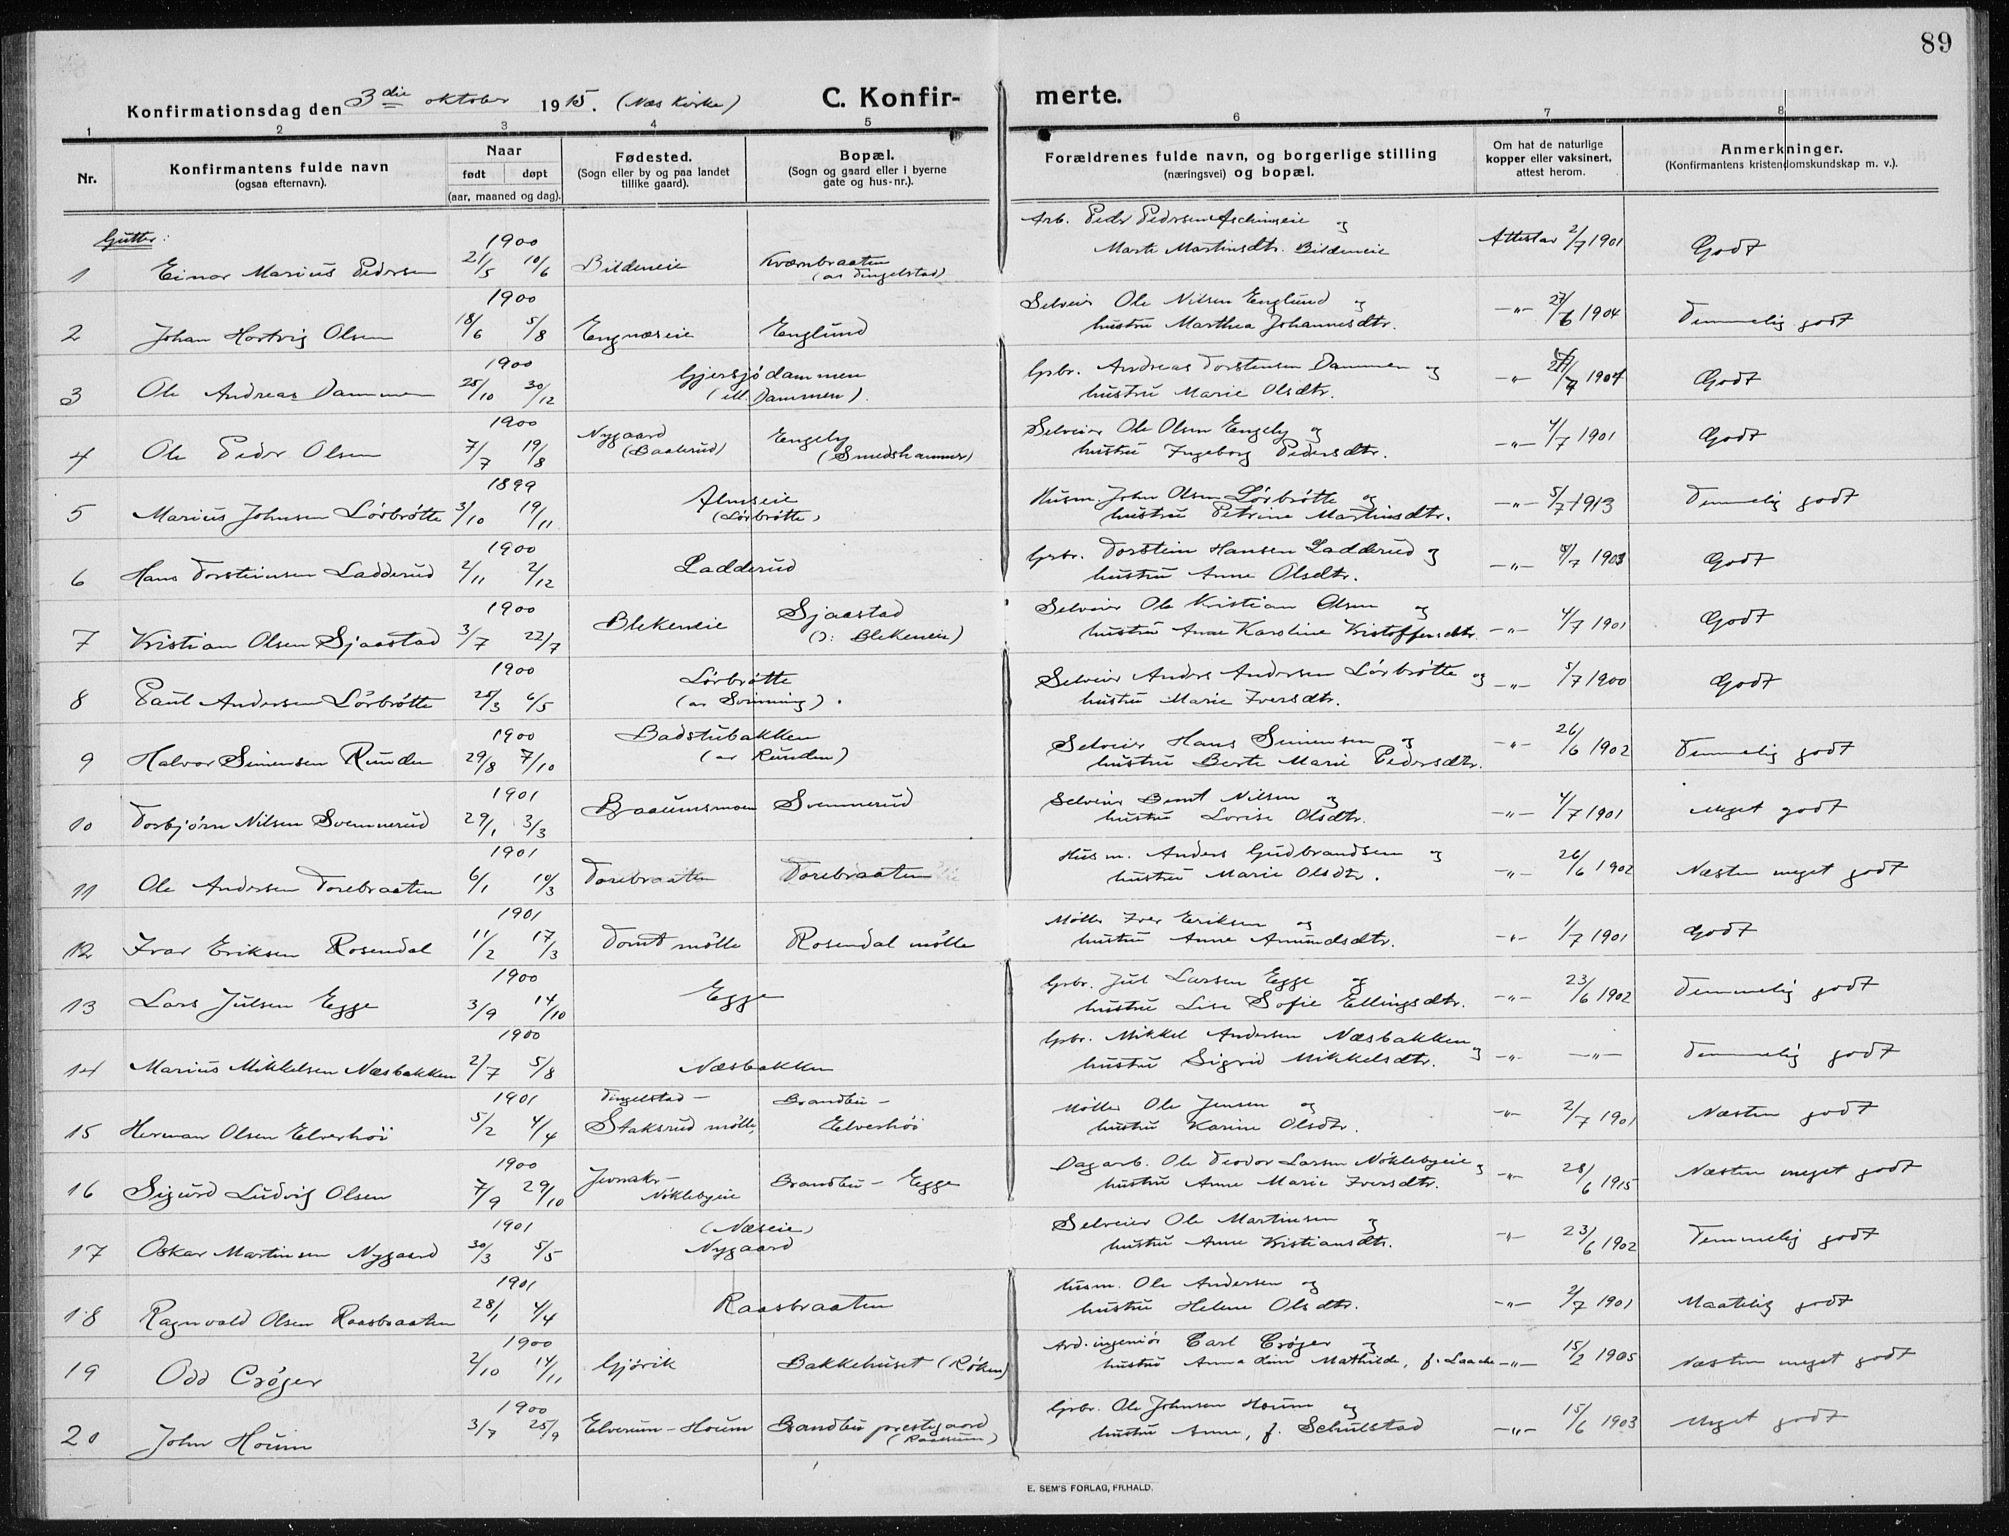 89
Konfirmationsdag den 3die oktober 1915. (Næs Kirke) C. Konfir- merte.
1 2 3 4 5 6 7 8
Nr.
Konfirmantens fulde navn
(ogsaa efternavn).
Naar
født døpt
(aar, maaned og dag).
Fødested.
(Sogn eller by og paa landet
tillike gaard).
Bopæl.
(Sogn og gaard eller i byerne
gate og hus-nr.).
Forældrenes fulde navn, og borgerlige stilling
(næringsvei) og bopæl.
Om hat de naturlige
kopper eller vaksinert,
attest herom.
Anmerkninger.
(Konfirmantens kristendomskundskap m. v.).
Gutter:
1900
1 Einar Marius Pedersen 21/5 10/6 Bildeneie Kværnbraaten
(av Tingelstad)
Arb. Peder Pedersen Aschimeie og
Marte Martinsdtr. Bildeneie
Attester 2/7 1901 Godt
1900
2 Johan Hartvig Olsen 18/6 5/8 Engnæseie Englund
Selveier Ole Nilsen Englund og
hustru Marthea Johannesdtr.
-"- 27/6 1904 Temmelig godt
1900
3 Ole Andreas Dammen 25/10 30/12 Gjersjødammen
(ell. Dammen).
Grbr. Andreas Torstensen Dammen og
hustru Marie Olsdtr.
-"- 1904 Godt
1900
4 Ole Peder Olsen 7/7 19/8 Nygaard
(Baalerud)
Engeby
(Smedshammer)
Selveier Ole Olsen Engeby og
hustru Ingeborg Pedersdtr.
-"- 4/7 1901 Godt
1899
5 Marius Johnsen Lørbrøtte 3/10 19/11 Almseie
(Lørbrøtte)
Husm. John Olsen Lørbrøtte og
hustru Petrine Martinsdtr.
-"- 5/7 1913 Temmelig godt
1900
6 Hans Torsteinsen Ladderud 2/11 2/12 Ladderud
Grbr. Torstein Hansen Ladderud og
hustru Anne Olsdtr.
-"- 1903 Godt
1900
7 Kristian Olsen Sjaastad 3/7 22/7 Blekeneie Sjaastad
(ɔ: Blekeneie)
Selveier Ole Kristian Olsen og
hustru Anne Karoline Kristoffersdtr.
-"- 4/7 1901 Godt
1900
8 Paul Andersen Lørbrøtte 25/3 6/5 Lørbrøtte
(av Svinning).
Selveier Anders Andersen Lørbrøtte og
hustru Marie Iversdtr.
-"- 5/7 1900 Godt
1900
9 Halvor Simensen Runden 29/8 7/10 Badstubakken
(av Runden)
Selveier Hans Simensen og
hustru Berte Marie Pedersdtr.
-"- 26/6 1902 Temmelig godt
1901
10 Torbjørn Nilsen Svennerud 29/1 3/3 Braaumsmoen Svennerud
Selveier Bernt Nilsen og
hustru Lovise Olsdtr.
-"- 4/7 1901 Meget godt
1901
11 Ole Andersen Torebraaten 6/1 10/3 Torebraaten Torebraaten
Husm. Anders Gudbrandsen og
hustru Marie Olsdtr.
-"- 26/6 1902 Næsten meget godt
1901
12 Ivar Eriksen Rosendal 11/2 17/3 Tomt mølle Rosendal mølle
Møller Iver Eriksen og
hustru Anne Amundsdtr.
-"- 1/7 1901 Godt
1900
13 Lars Julsen Egge 3/9 14/10 Egge
Grbr. Jul Larsen Egge og
hustru Lise Sofie Ellingsdtr.
-"- 23/6 1902 Temmelig godt
1900
14 Marius Mikkelsen Næsbakken 2/7 5/8 Næsbakken
Grbr. Mikkel Andersen Næsbakken og
hustru Sigrid Mikkelsdtr.
-"- -"- Temmelig godt
1901
15 Herman Olsen Elverhöi 5/2 4/4 Tingelstad -
Staksrud mølle,
Brandbu -
Elverhöi
Møller Ole Jensen og
hustru Karine Olsdtr.
-"- 2/7 1901 Næsten godt
1900
16 Sigurd Ludvig Olsen 7/9 29/10 Jevnaker -
Niklebyeie
Brandbu - Egge
Dagarb. Ole Teodor Larsen Nøklebyeie og
hustru Anne Marie Iversdtr.
-"- 28/6 1915 Næsten meget godt
1901
17 Oskar Martinsen Nygaard 30/3 5/5 (Næseie)
Nygaard
Selveier Ole Martinsen og
hustru Anne Kristiansdtr.
-"- 23/6 1902 Temmelig godt
1901
18 Ragnvald Olsen Raasbraaten 28/1 4/4 Raasbraaten
Husm. Ole Andersen og
hustru Helene Olsdtr.
-"- 2/7 1901 Maatelig godt
1900
19 Odd Crøger 2/10 14/11 Gjøvik Bakkehuset (Røken)
Avd. ingeniør Carl Crøger og
hustru Anna Mathilde, f. Laache
-"- 15/2 1905 Næsten meget godt
1900
20 John Houm 3/7 25/9 Elverum - Houm Brandbu prestegaard
Grbr. Ole Johnsen Houm og
hustru Anne, f. Schulstad
-"- 15/6 1903 Meget godt
E. SEM'S FORLAG, FR.HALD.